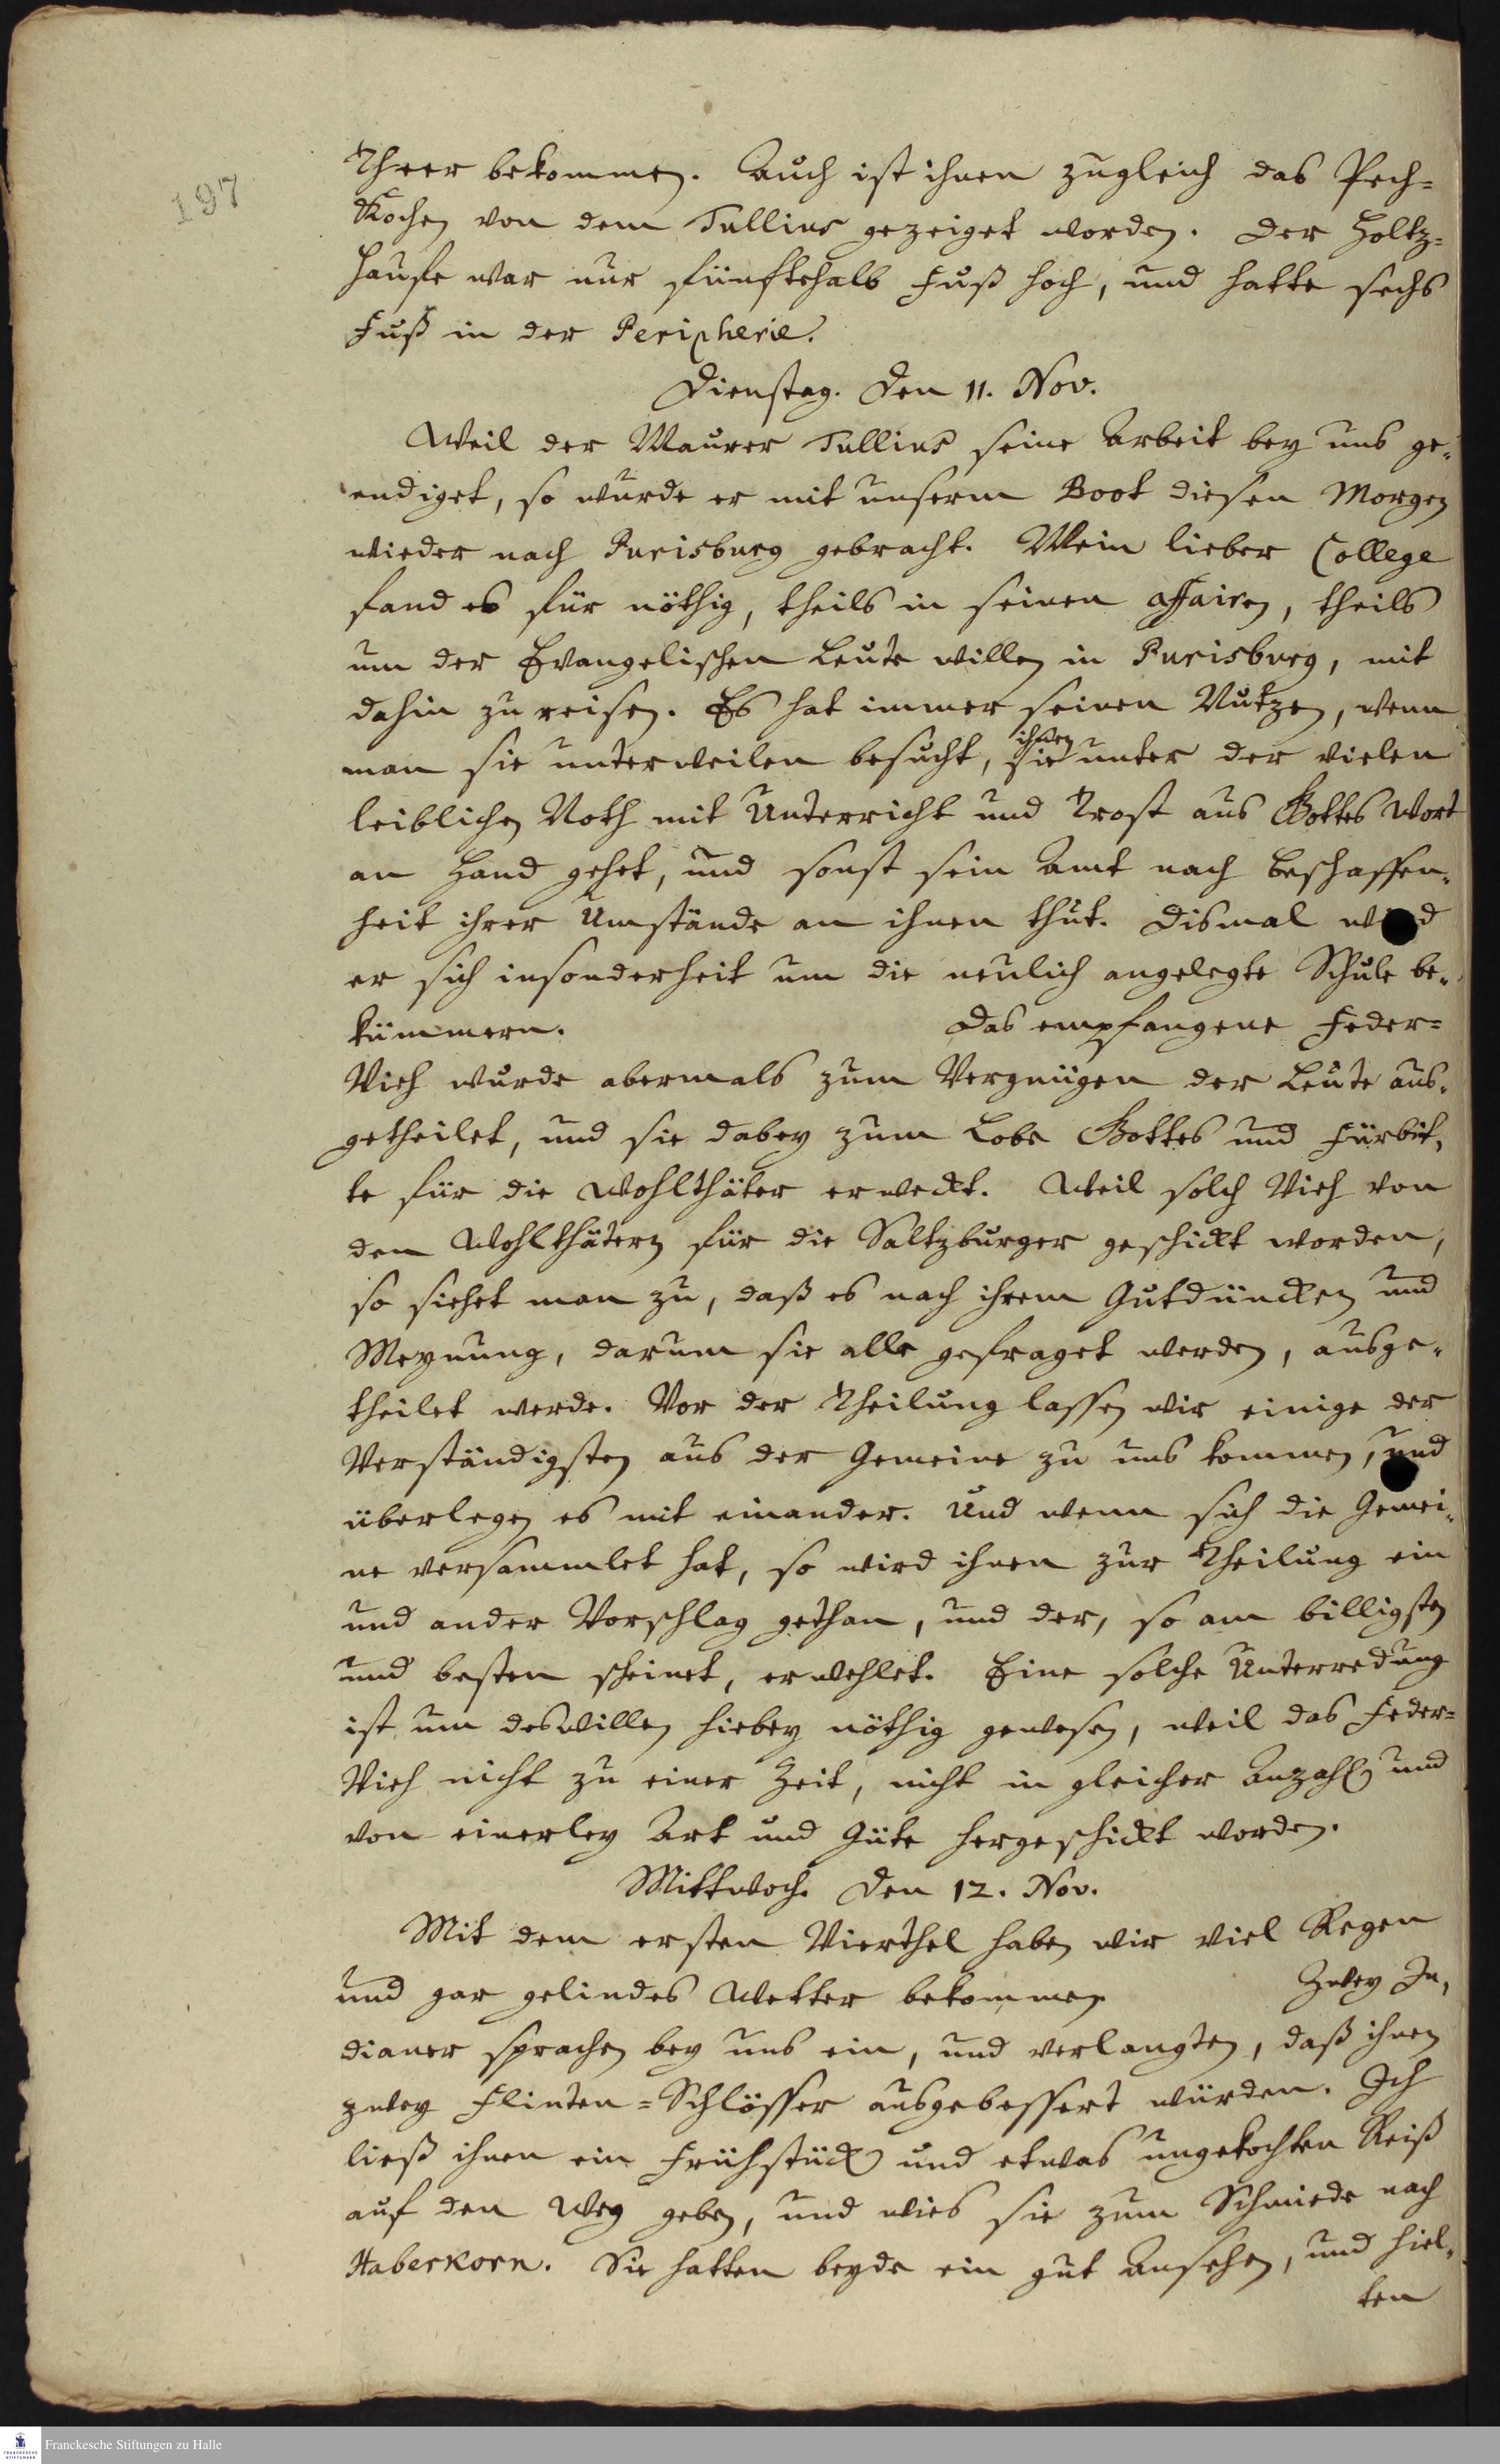 197
Theer bekommen. Auch ist ihnen zugleich das Pech-
Kochen von dem Tullius gezeiget worden. Der Holtz-
hauffe war nur fünftehalb Fuß hoch, und hatte sechs
Fuß in der Peripherie.
Dienstag. Den 11. Nov.
Weil der Maurer Tullius seine Arbeit bey uns ge-
endiget, so wurde er mit unserm Boot diesen Morgen
wieder nach Purisburg gebracht. Mein lieber College
fand es für nöthig, theils in seinen affairen, theils
um der Evangelischen Leute willen in Purisburg, mit
dahin zu reisen. Es hat immer seinen Nutzen, wenn
man sie unterweilen besucht, sie ihnen unter der vielen
leiblichen Noth mit Unterricht und Trost aus Gottes Wort
an Hand gehet, und sonst sein Amt nach Beschaffen-
heit ihrer Umstände an ihnen thut. Dismal wird
er sich insonderheit um die neulich angelegte Schule be-
kümmern. Das empfangene Feder-
Vieh wurde abermals zum Vergnügen der Leute aus-
getheilet, und sie dabey zum Lobe Gottes und Fürbit-
te für die Wohlthäter erweckt. Weil solch Vieh von
den Wohlthätern für die Saltzburger geschickt worden,
so siehet man zu, daß es nach ihrem Gutdüncken und
Meynung, darum sie alle gefraget werden, ausge-
theilet werde. Vor der Theilung lassen wir einige der
Verständigsten aus der Gemeine zu uns kommen, und
überlegen es mit einander. Und wenn sich die Gemei-
ne versammlet hat, so wird ihnen zur Theilung ein
und ander Vorschlag gethan, und der, so am billigsten
und besten scheinet, erwehlet. Eine solche Unterredung
ist um deswillen hiebey nöthig gewesen, weil das Feder-
Vieh nicht zu einer Zeit, nicht in gleicher Anzahl und
von einerley Art und Güte hergeschickt worden.
Mittwoch. Den 12. Nov.
Mit dem ersten Vierthel haben wir viel Regen
und gar gelindes Wetter bekommen Zwey In-
dianer sprachen bey uns ein, und verlangten, daß ihnen
zwey Flinten-Schlösser ausgebessert würden. Ich
ließ ihnen ein Frühstück und etwas ungekochten Reiß
auf den Weg geben, und wies sie zum Schmiede nach
Haberkorn. Sie hatten beyde ein gut Ansehen, und hiel-
ten
Franckesche Stiftungen zu Halle